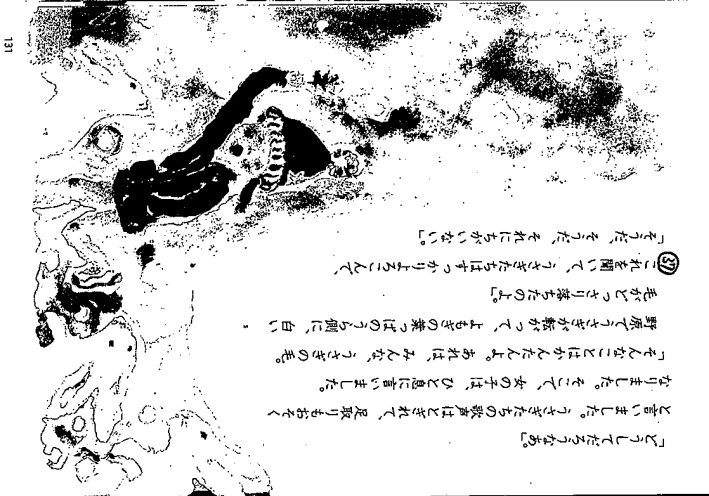 「どうしてだろうなあ。」
と言いました。うさぎたちの歌声はとぎれて、足取りもおそく
なりました。そこで、女の子は、ひと息に言いました。
「そんなことはかんたんよ。あれは、みんな、うさぎの毛。
野原でうさぎが転がって、よもぎの葉っぱのうら側に、白い
毛がどっさり落ちたのよ。」
㊲これを聞いて、うさぎたちはすっかりよろこんで、
「そうだ、そうだ、それにちがいない。」
131